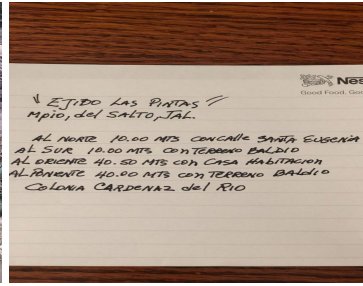 Nes
Good Food, Goo
√ EJIDO LAS PINTAS //
Mpio, del SALTO, JAL.
AL NORTE 10.00 MTS CON CALLE SANTA EUGENIA
AL SUR 10.00 MTS CON TERRENO BALDIO
AL ORIENTE 40.50 MTS CON CASA HABITACION
AL PONIENTE 40.00 MTS CON TERRENO BALDIO
COLONIA CARDENAZ del RIO